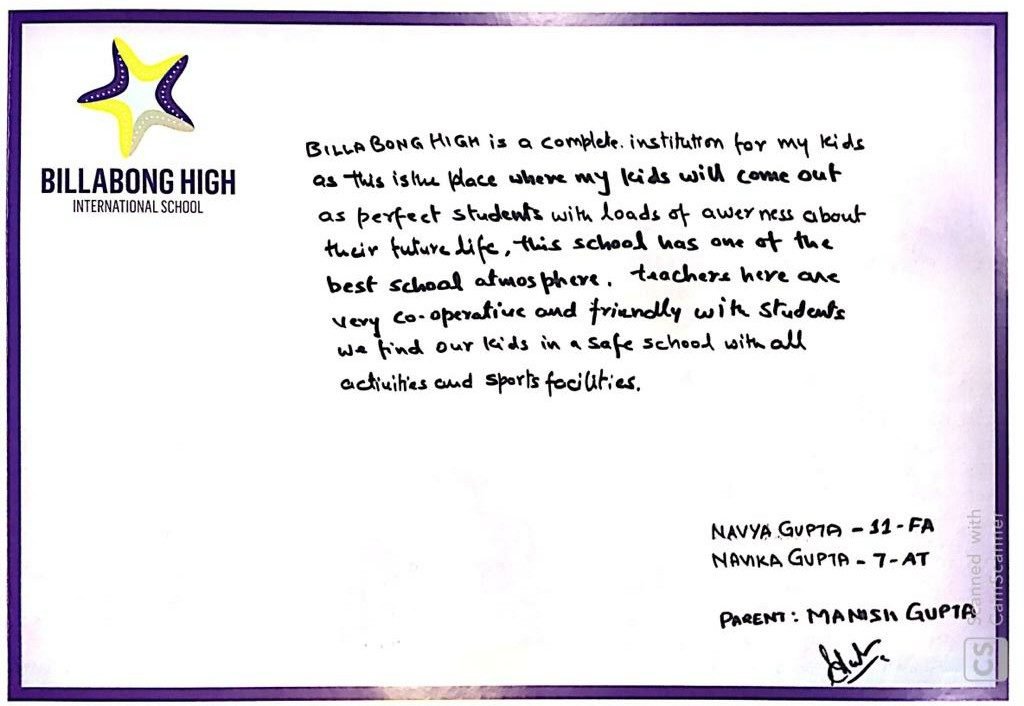 BILLABONG HIGH
INTERNATIONAL SCHOOL
BILLABONG HIGH is a complete. institution for my kids
as this is the place where my kids will come out
as perfect students with loads of awerness about
their future life, this school has one of the
best school atmosphere. teachers here are
very co-operative and friendly with students
we find our kids in a safe school with all
activities and sports facilities.
NAVYA GUPTA - 11-FA
NAVIKA GUPTA - 7-AT
PARENT: MANISH GUPTA
CS
Scanned with
CamScanner